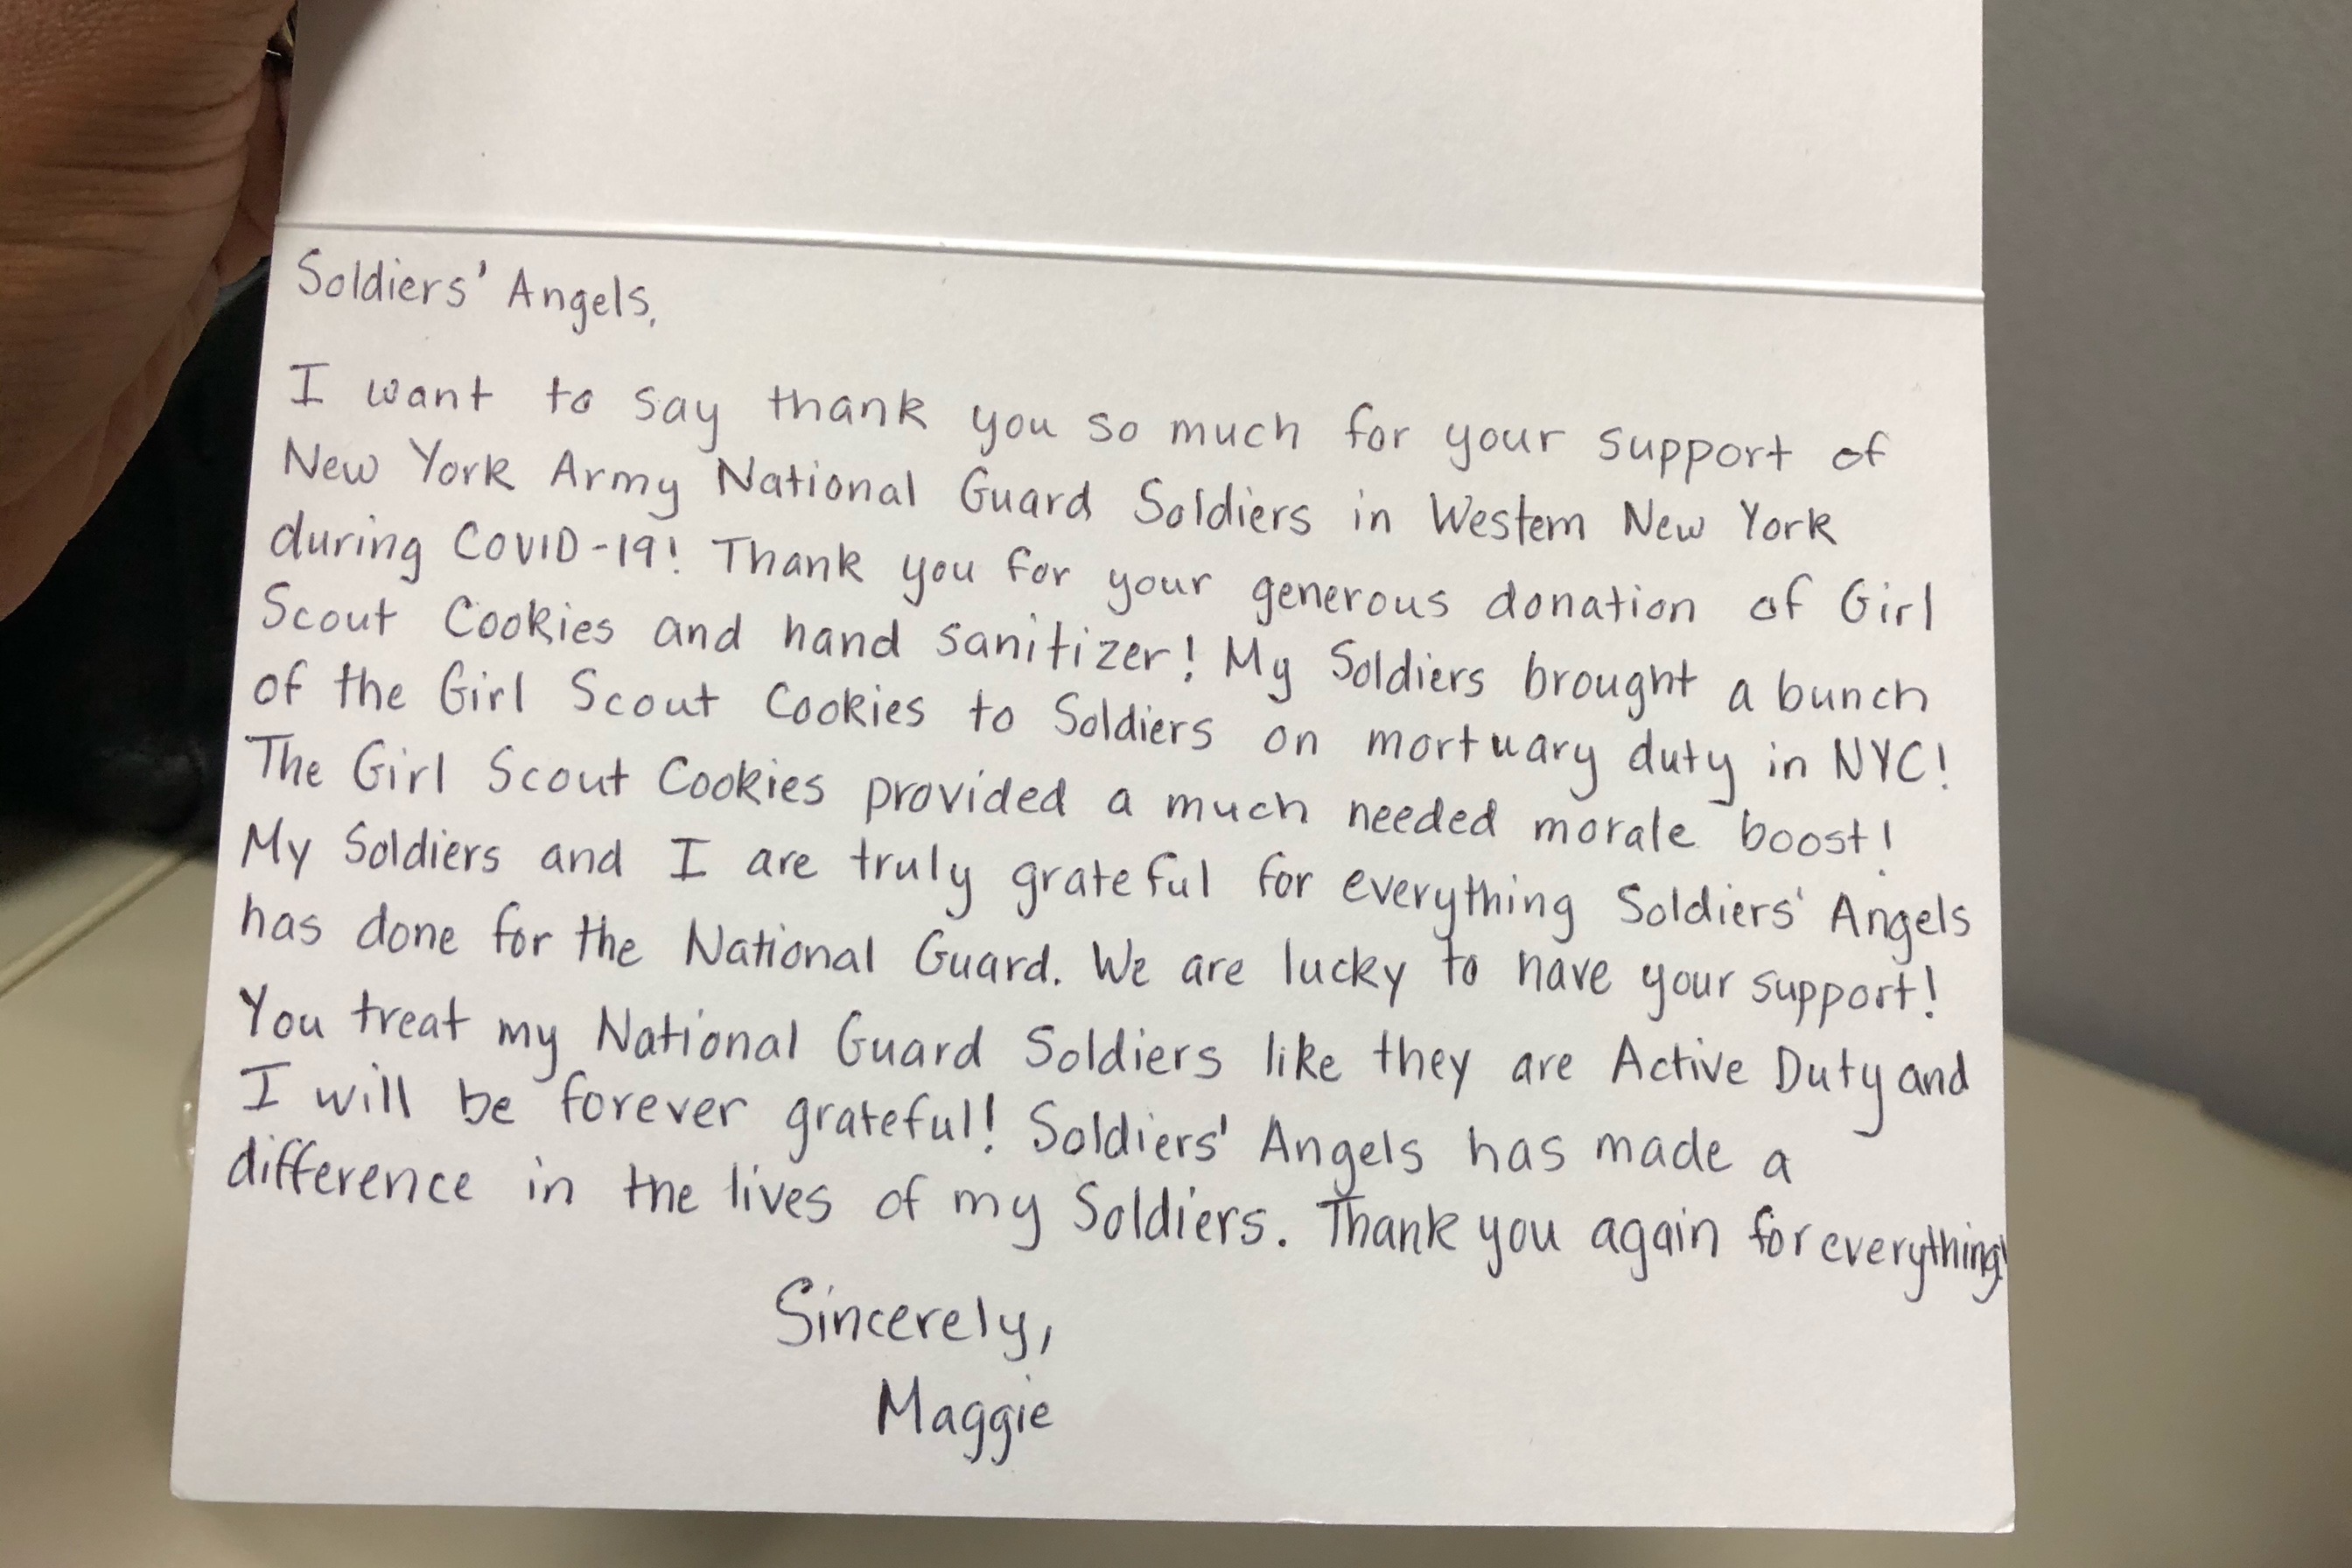 Soldiers' Angels,
I want to say thank you so much for your support of
New York Army National Guard Soldiers in Western New York
during COVID-19! Thank you for your generous donation of Girl
Scout Cookies and hand sanitizer! My Soldiers brought a bunch
of the Girl Scout Cookies to Soldiers on mortuary duty in NYC!
The Girl Scout Cookies provided a much needed morale boost!
My Soldiers and I are truly grateful for everything Soldiers' Angels
has done for the National Guard. We are lucky to have your support!
You treat my National Guard Soldiers like they are Active Duty and
I will be forever grateful! Soldiers' Angels has made a
difference in the lives of my Soldiers. Thank you again for everything!
Sincerely,
Maggie